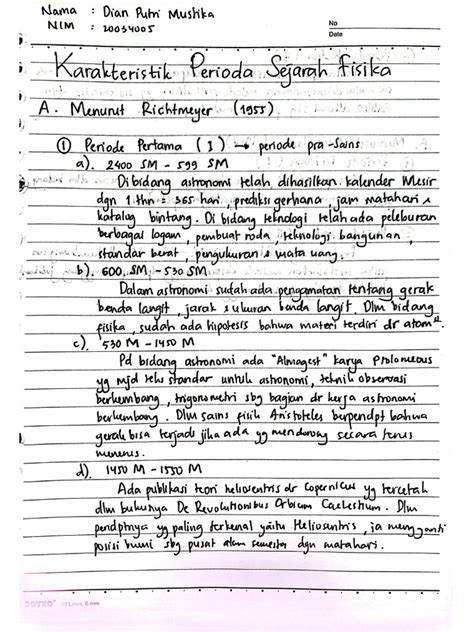 Nama : Dian Putri Mustika
NIM : 20034005
No
Date
Karakteristik Perioda Sejarah Fisika
A. Menurut Richtmeyer (1955)
① Periode Pertama (I) → periode pra-Sains
a). 2400 SM - 599 SM
Di bidang astronomi telah dihasilkan kalender Mesir
dgn 1 thn = 365 hari, prediksi gerhana, jam matahari &
katalog bintang. Di bidang teknologi telah ada peleburan
berbagai logam, pembuat roda, teknologi bangunan,
standar berat, pengukuran & mata uang.
b). 600 SM - 530 SM
Dalam astronomi sudah ada pengamatan tentang gerak
benda langit, jarak & ukuran benda langit. Dlm bidang
fisika, sudah ada hipotesis bahwa materi terdiri dr atom².
c). 530 M - 1450 M
Pd bidang astronomi ada "Almagest" karya Ptolomeous
yg mjd teks standar untuk astronomi, teknik observasi
berkembang, trigonometri sbg bagian dr kerja astronomi
berkembang. Dlm sains fisik Aristoteles berpendpt bahwa
gerak bisa terjadi jika ada yg mendorong secara terus
menerus.
d). 1450 M - 1550 M
Ada publikasi teori heliosentris dr Copernicus yg tercetak
dlm bukunya De Revolutionibus Orbium Caelestium. Dlm
pendptnya yg paling terkenal yaitu Heliosentris, ia mengganti
posisi bumi sbg pusat alam semester dgn matahari.